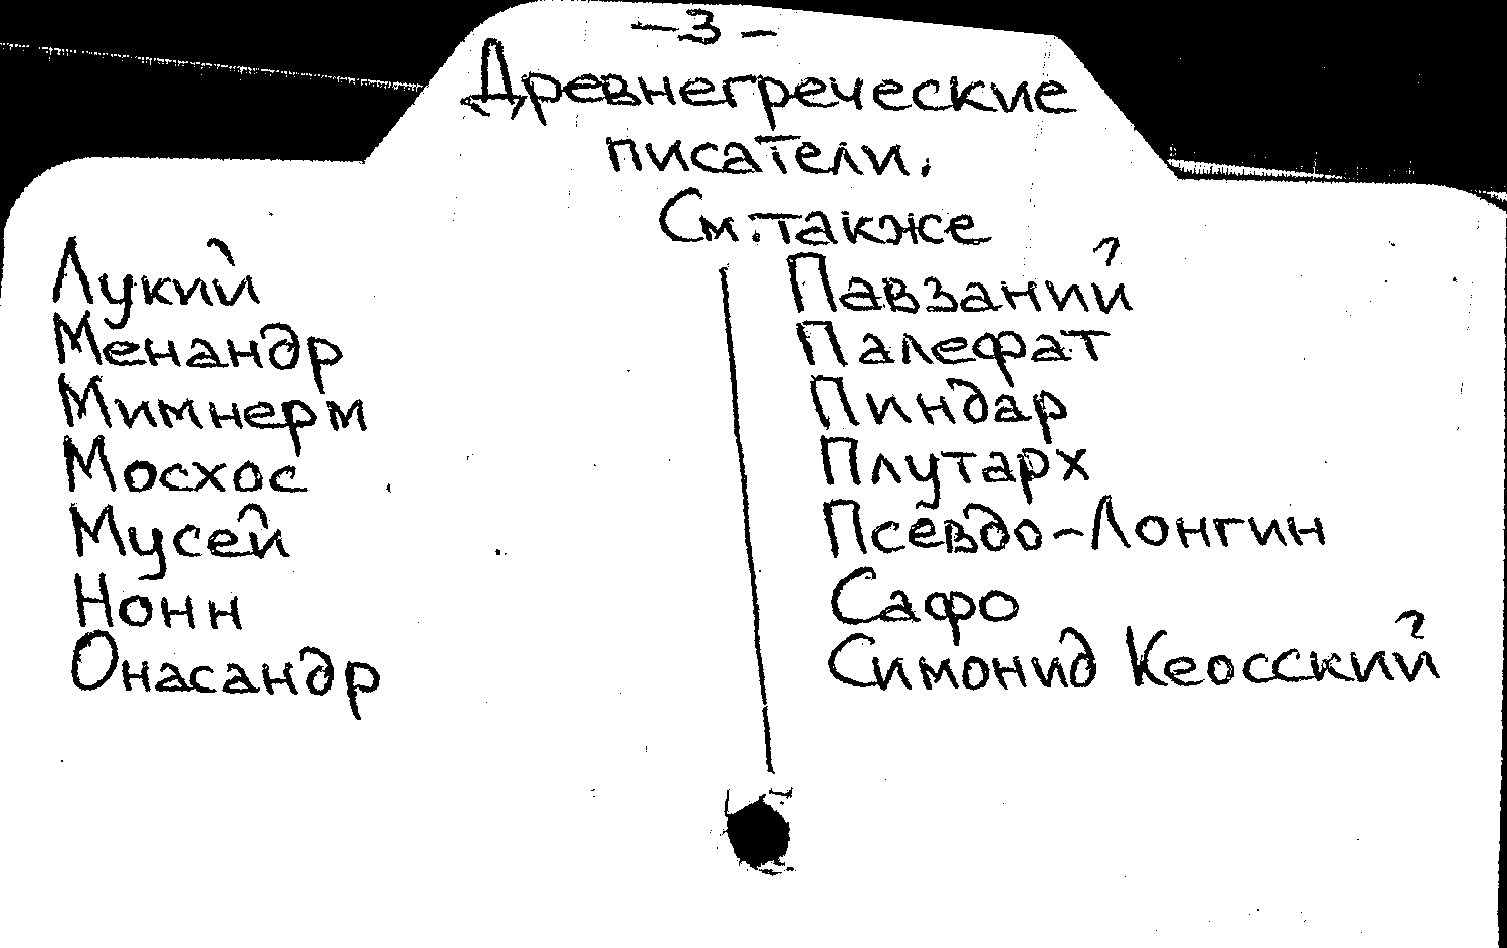 -3-
Древнегреческие
писатели.
См. также
Лукий
Менандр
Мимнерм
Мосхос
Мусей
Нонн
Онасандр
Павзаний
Палефат
Пиндар
Плутарх
Псевдо-Лонгин
Сафо
Симонид Кеосский